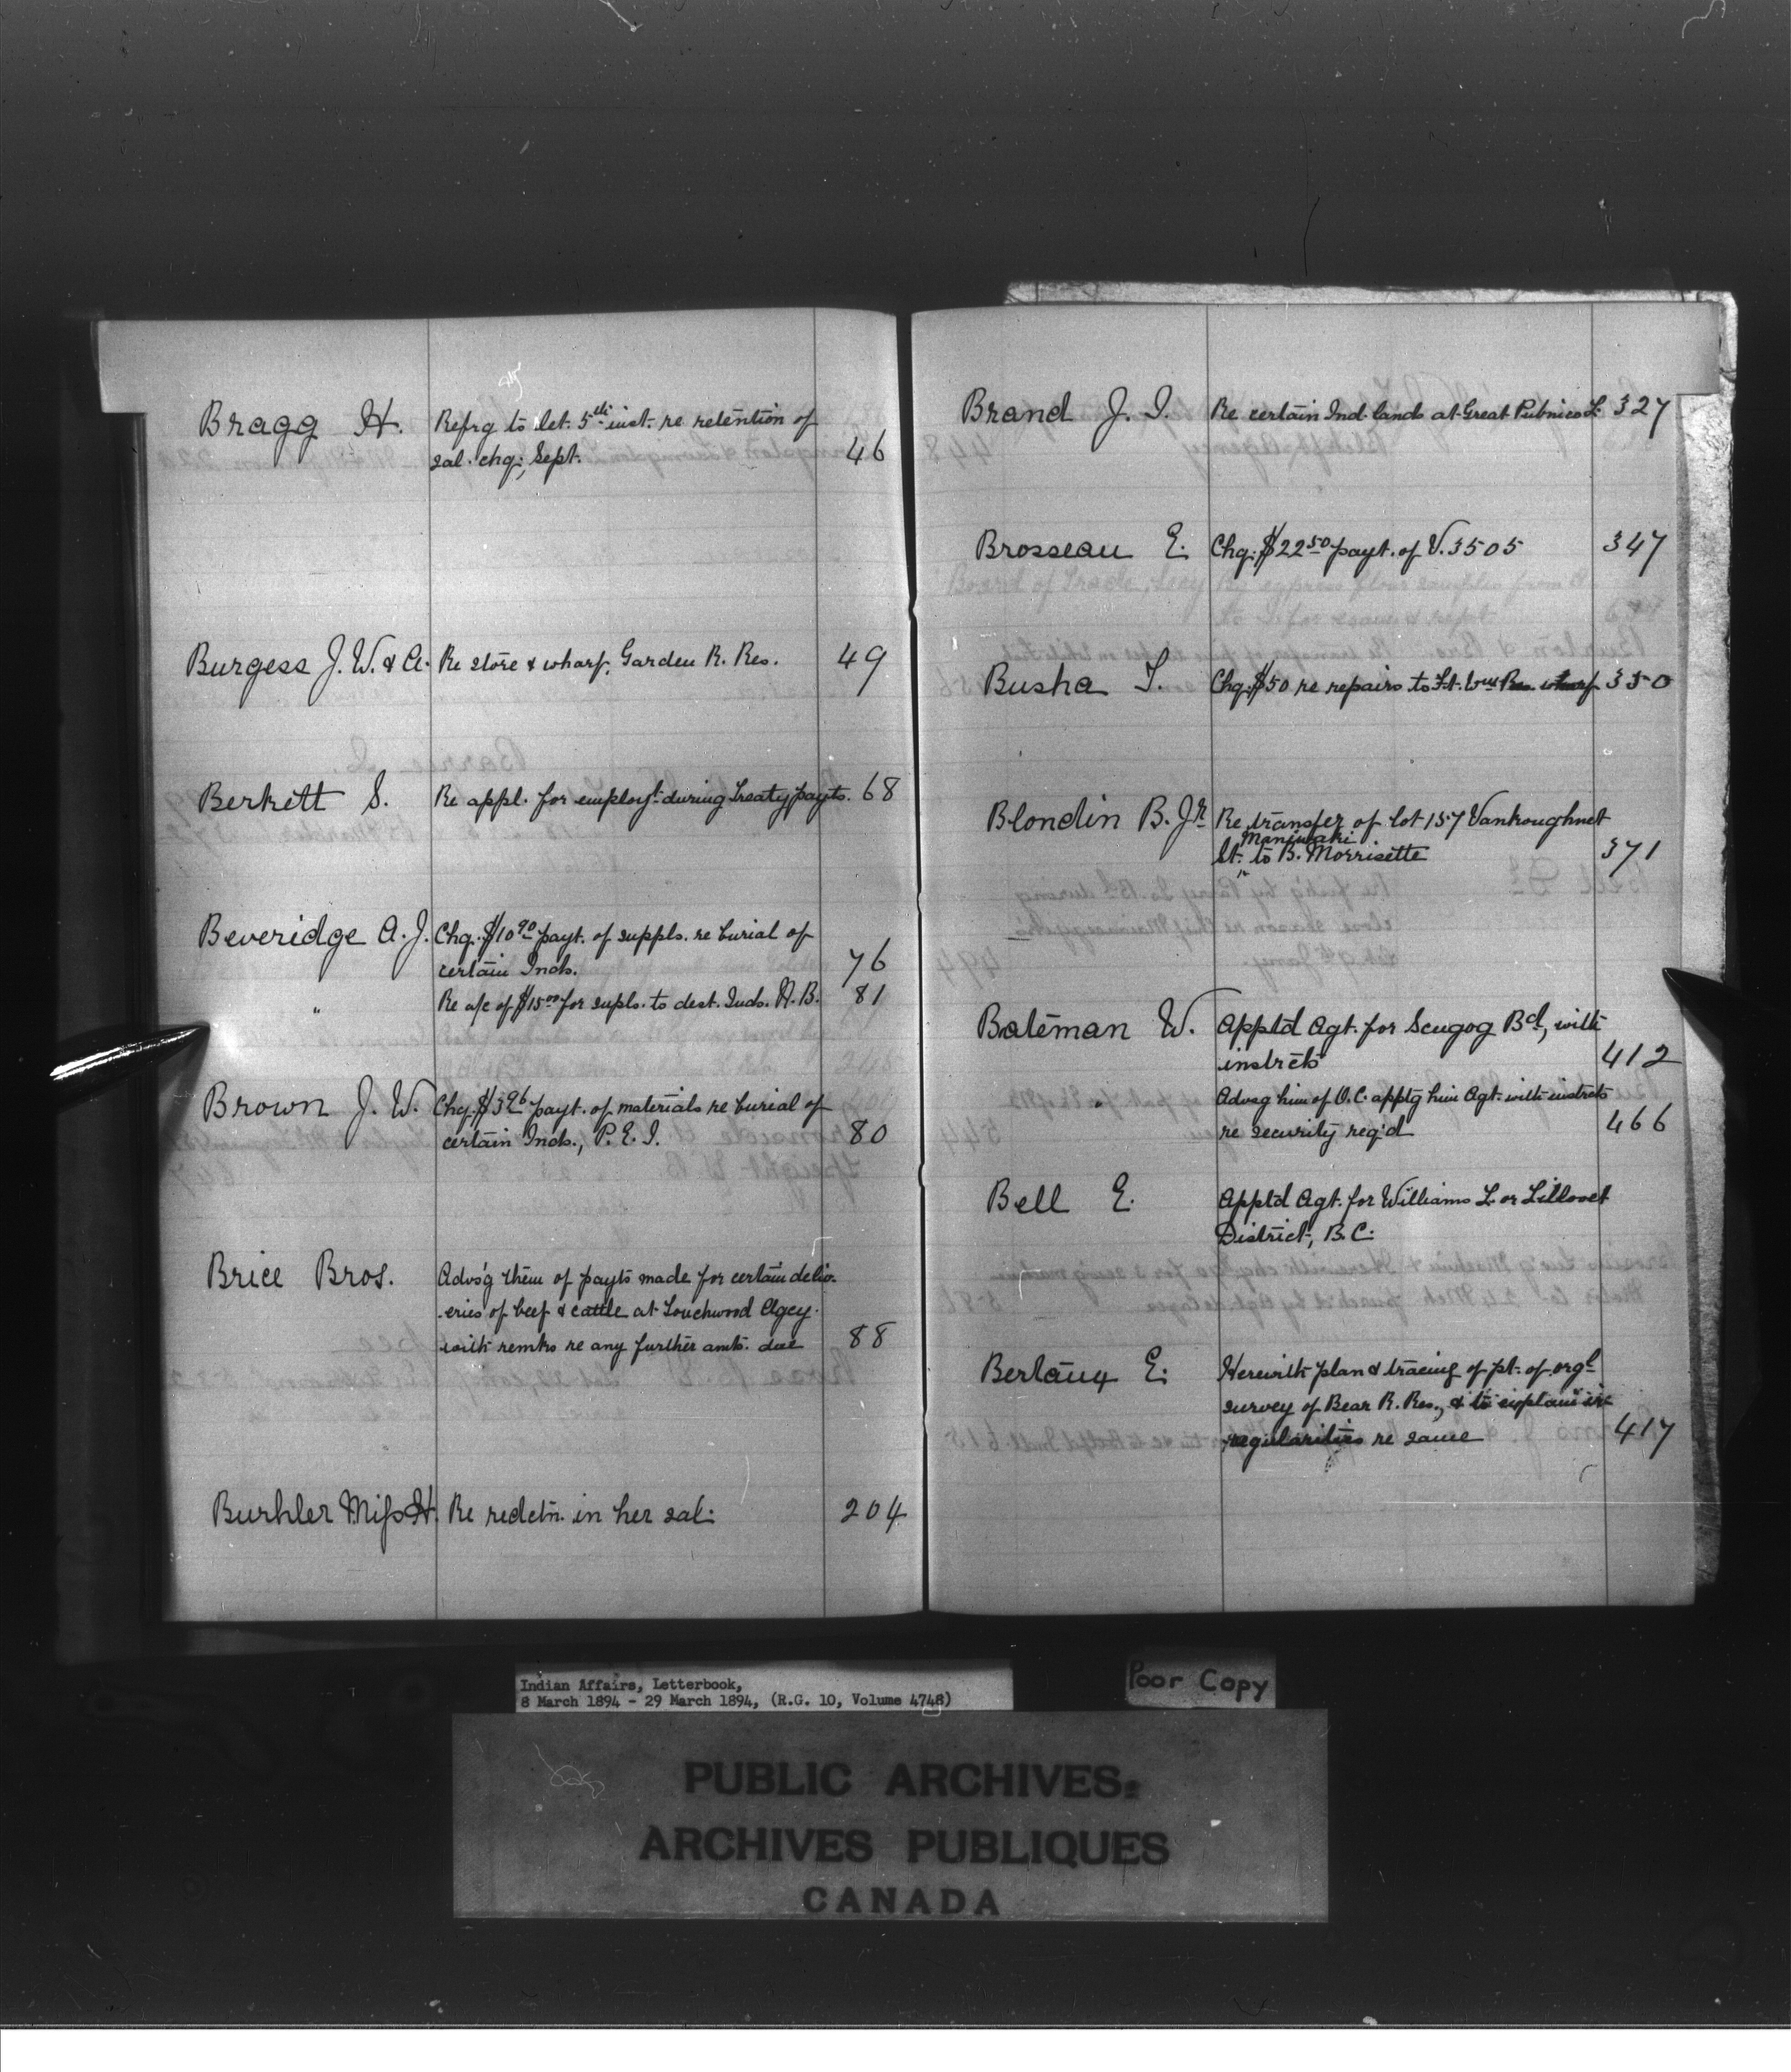 Bragg H. Refrg to let. 5th inst. re retention of
sal. chq. Sept. 46
Burgess J. W. & A. Re store & wharf, Garden R. Res. 49
Berkett S. Re appl. for employt. during Treaty payts. 68
Beveridge A. J. Chq. $10 90 payt. of suppls. re burial of
certain Inds. 76
" Re a/c of $15 00 for supls. to dest. Inds. N. B. 81
Brown J. W. Chq. $3 96 payt. of materials re burial of
certain Inds., P. E. I. 80
Brice Bros. Advs'g them of payts made for certain deliv-
eries of beef & cattle at Touchwood Agcy.
with remks re any further amts. due 88
Burhler Miss H. Re redctn. in her sal. 204
Brand J. I. Re certain Ind. lands at Great Pubnico L. 327
Brosseau E. Chq. $22 50 payt. of V. 3505 347
Busha T. Chq. $50 re repairs to Ft. Wm Res. wharf 350
Blondin B. Jr. Re transfer of lot 157 Vankoughnet
Maniwaki
St. to B. Morrisette 371
Bateman W. Apptd Agt. for Scugog Bd, with
instrcts 412
" Advsg him of O. C. apptg him Agt. with instrcts
re security req'd 466
Bell E. Apptd Agt. for Williams L. or Lillooet
District, B. C.
Herewith plan & tracing of pt. of orgl
survey of Bear R. Res., & to explain ir-
regularities re same 417
Indian Affairs, Letterbook,
8 March 1894 - 29 March 1894, (R.G. 10, Volume 4748)
Poor Copy
PUBLIC ARCHIVES
ARCHIVES PUBLIQUES
CANADA